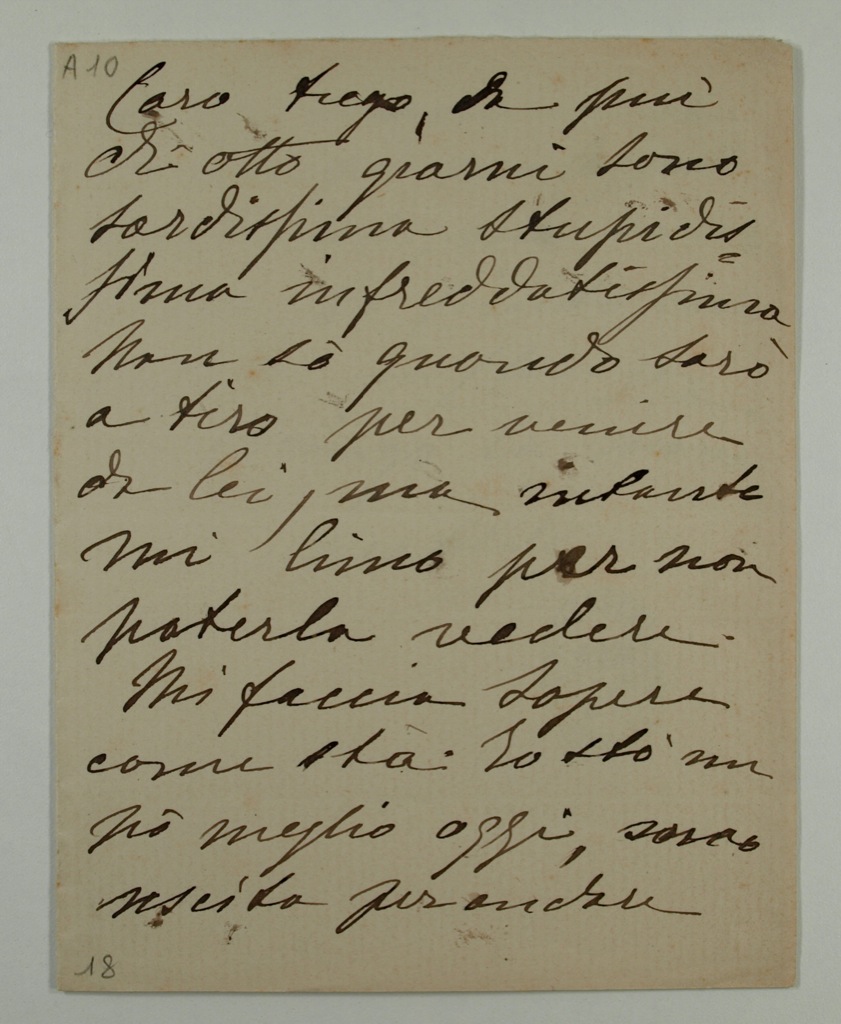 A 10
Caro
da più
di otto giorni sono
sordissima stupidis=
sima infreddatissima
Non sò quando sarò
a tiro per venire
da lei, ma intanto
mi limo per non
poterla vedere.
Mi faccia sapere
come stà. Io stò un
pò meglio oggi, sono
uscita per andare
18